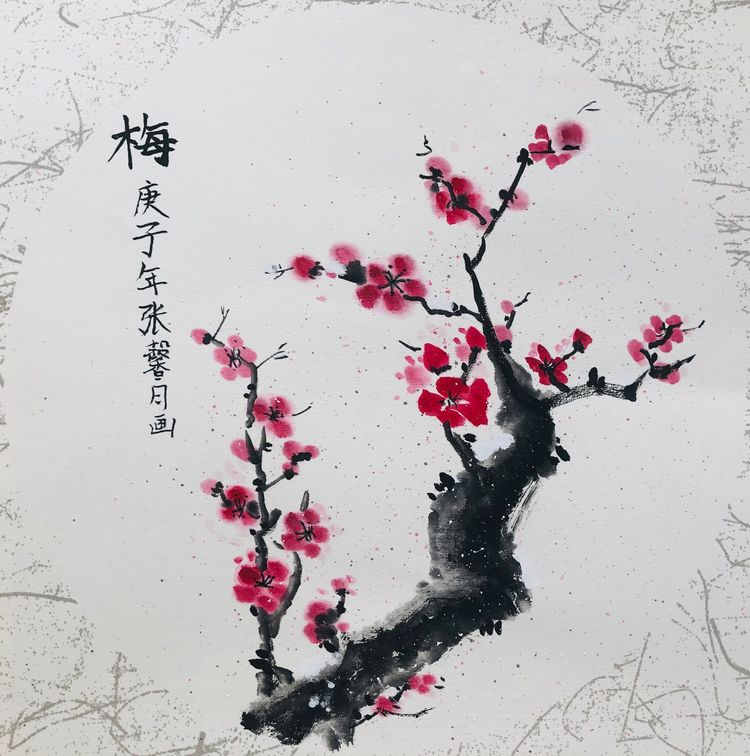 梅
庚子年张馨月画